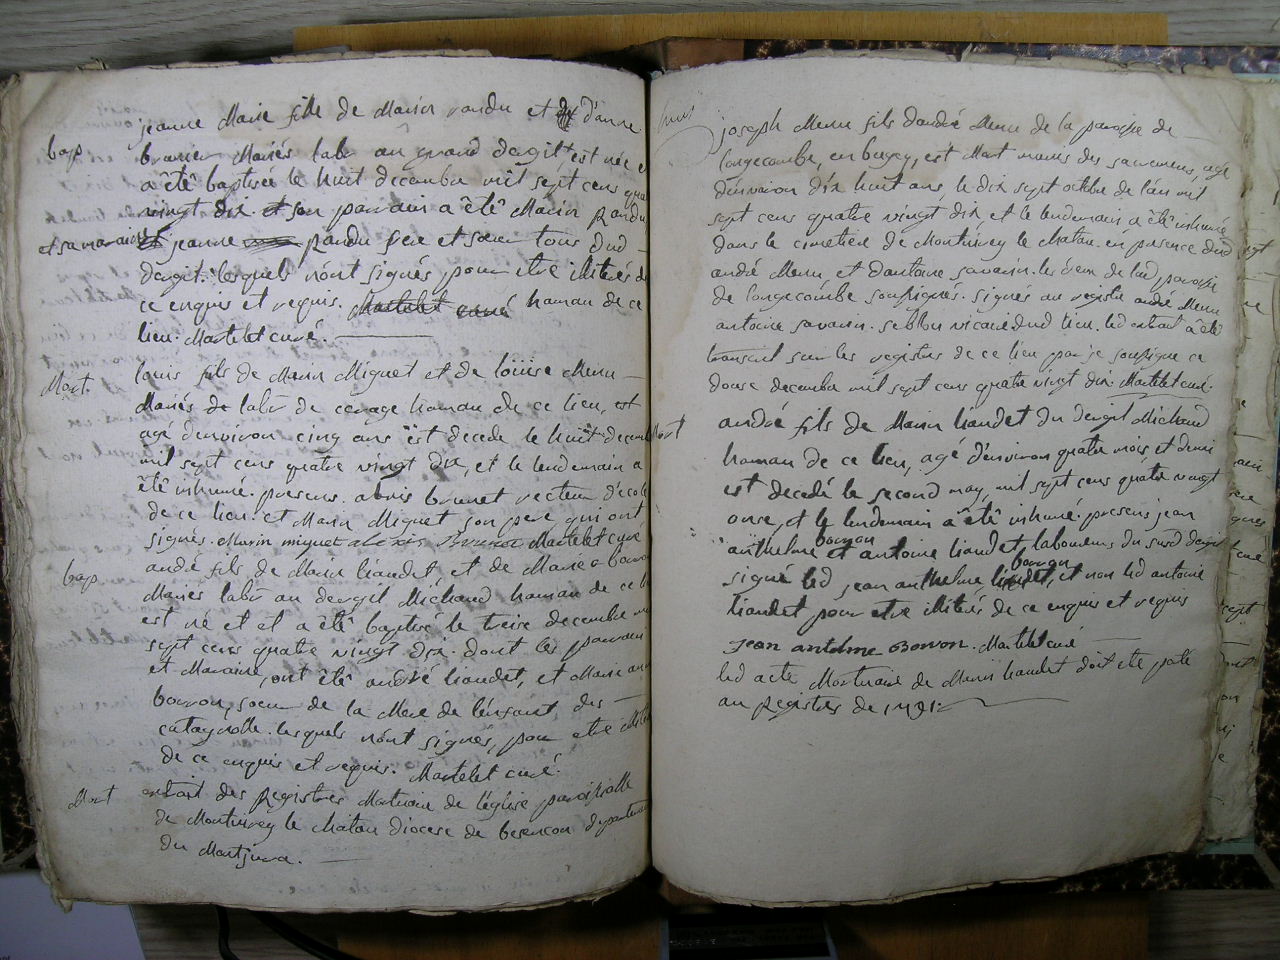 bap
jeanne Marie fille de Marin pandu et d'anne
Mariés labr au grand dergil est née
a êtê baptisée le huit decembre mil sept cens qua
vingt dix son parrain a êtê Marin pandu
et sa maraine jeanne pandu et sœur tous dud
dergit lesquels n'ont signés pour etre illiterés de
ce enquis et requis. Martelet curé hamau de ce
lieu. Martelet curé.
Mort.
louis fils de Marin Miguet et de loüise Menu
Mariés labr de hamau de ce lieu, est
agé d'environ cinq ans est decede le huit decem
mil sept cens quatre vingt dix, et le lendemain a
êtê inhumé. presens. alexis brunet recteur d'ecole
de ce lieu. et Marin Miguet son pere qui ont
signés. Marin miguet alexis Brunet Martelet curé
bap
andré fils de Marin liaudet et de Marie
Mariés labr au dergit Michaud hamau de ce
est né et et a êtê baptisé le treize decembre
sept cens quatre vingt dix. dont les parrain
et Maraine, ont êtê andré liaudet, et Marie
borron, sœur de la Mere de l'enfant des
catagnolle. lesquels n'ont signés, pour etre
de ce enquis et requis. Martelet curé.
Mort
extrait des Registres Mortuaire de l'église paroissialle
de Montmirey le chatau diocese de besençon departement
du Montjura.
joseph Menu fils d'andré Menu de la paroisse de
longecombe, en bugey, est Mort munis des sacremens, agé
d'environ dix huit ans, le dix sept octbre de l'an mil
sept cens quatre vingt dix et le lendemain a êtê inhumé
dans le cimetiere de Montmirey le chatau. en presence dud
andré Menu et d'antoine savarin. les deux de lad paroisse
de longecombe soussignés. signés au registre andré Menu
antoine savarin. vicaire dud lieu. led extrait a êtê
transcrit sur les registres de ce lieu par je soussigné ce
douze decembre mil sept cens quatre vingt dix. Martelet curé.
Mort
andré fils de Marin liaudet du dergit Michaud
hamau de ce lieu, agé d'environ quatre mois et demi
est decedé le second may, mil sept cens quatre vingt
onze, et le lendemain a êtê inhumé. presens jean
anthelme borron et antoine liaudet, laboureurs du susd dergit
signé led jean anthelme borron, et non led antoine
liaudet pour etre illiterés de ce enquis et requis
jean antelme Borron. Martelet curé
led acte Mortuaire de Marin liaudet doit etre porté
au Registres de 1791.